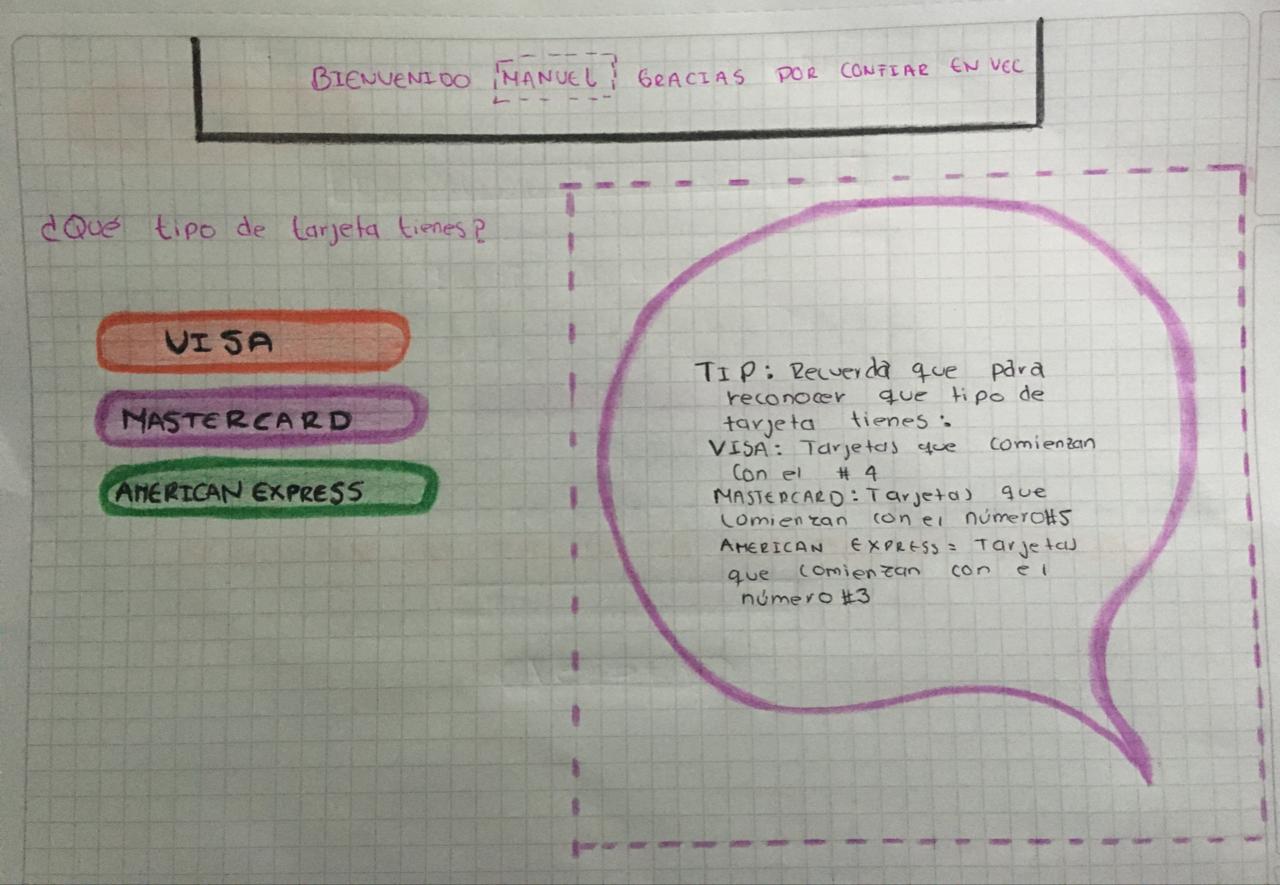 BIENVENIDO MANUEL GRACIAS POR CONFIAR EN VEC
¿Qué tipo de tarjeta tienes?
VISA
MASTERCARD
AMERICAN EXPRESS
TIP: Recuerda que para
reconocer que tipo de
tarjeta tienes:
VISA: Tarjetas que comienzan
con el # 4
MASTERCARD: Tarjetas que
comienzan con el número #5
AMERICAN EXPRESS: Tarjetas
que comienzan con el
número #3